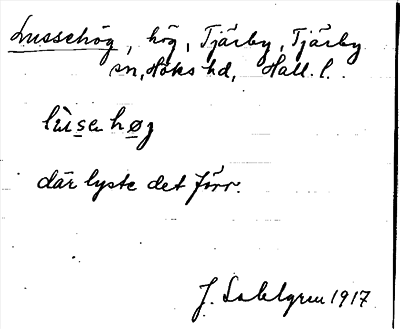 Lussehög, hög, Tjärby, Tjärby
sn, Höks hd, Hall. l.
lùsɐhøg
där lyste det förr.
J. Sahlgren 1917